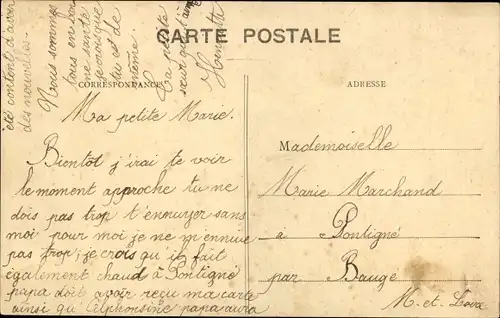 CARTE POSTALE
CORRESPONDANCE
ADRESSE
Ma petite Marie.
Bientôt j'irai te voir
le moment approche tu ne
dois pas trop t'ennuyer sans
moi pour moi je ne m'ennuie
pas trop; je crois qu'il fait
également chaud à Pontigné
papa doit avoir reçu ma carte
ainsi qu'Alphonsine papa aura
été content d'avoir
des nouvelles.
Nous sommes
tous en bonne santé
je crois que
tu es de
même.
Ta petite
sœur qui t'aime
Henriette
Mademoiselle
Marie Marchand
à Pontigné
par Baugé
M. et Loire